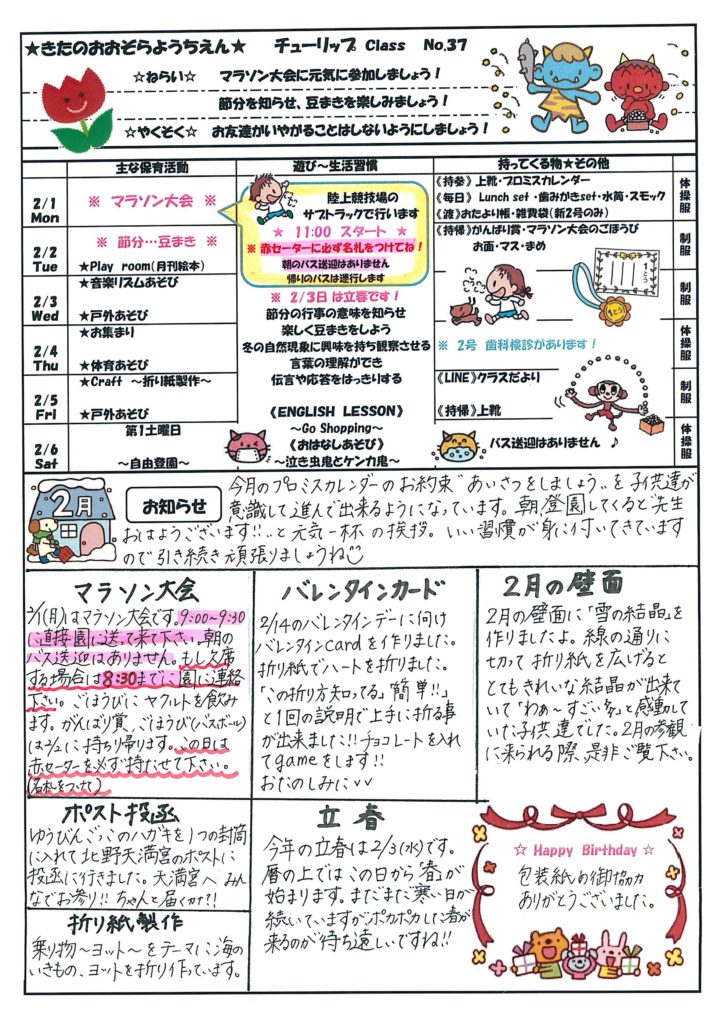 ★きたのおおぞらようちえん★ チューリップ Class No.37
☆ねらい☆ マラソン大会に元気に参加しましょう！
節分を知らせ、豆まきを楽しみましょう！
☆やくそく☆ お友達がいやがることはしないようにしましょう！
主な保育活動
遊び～生活習慣
持ってくる物★その他
2/1
Mon
※ マラソン大会 ※
陸上競技場の
サブトラックで行います
★ 11:00 スタート ★
※ 赤セーターに必ず名札をつけてね！
朝のバス送迎はありません
帰りのバスは運行します
《持参》上靴・プロミスカレンダー
《毎日》 Lunch set ・歯みがきset・水筒・スモック
《渡》おたより帳・雑費袋（新2号のみ）
体操服
2/2
Tue
※ 節分…豆まき ※
★Play room（月刊絵本）
《持帰》がんばり賞・マラソン大会のごほうび
お面・マス・まめ
制服
2/3
Wed
★音楽リズムあそび
★戸外あそび
※ 2/3日 は立春です！
節分の行事の意味を知らせ
楽しく豆まきをしよう
冬の自然現象に興味を持ち観察させる
言葉の理解ができ
伝言や応答をはっきりする
制服
2/4
Thu
★お集まり
★体育あそび
※ 2号 歯科検診があります！
体操服
2/5
Fri
★Craft ～折り紙製作～
★戸外あそび
《ENGLISH LESSON》
～Go Shopping～
《おはなしあそび》
～泣き虫鬼とケンカ鬼～
《LINE》クラスだより
《持帰》上靴
制服
2/6
Sat
第1土曜日
～自由登園～
バス送迎はありません ♪
体操服
2月
お知らせ
今月のプロミスカレンダーのお約束〝あいさつをしましょう〟を子供達が
意識して進んで出来るようになっています。朝登園してくると〝先生
おはようございます!!〟と元気一杯の挨拶。いい習慣が身に付いてきています
ので引き続き頑張りましょうね
マラソン大会
2/1(月)はマラソン大会です。9:00～9:30
に直接園に送って来て下さい。朝の
バス送迎はありません。もし欠席
する場合は8:30までに園に連絡
下さい。ごほうびにヤクルトを飲み
ます。がんばり賞、ごほうび(バスボール)
は2/2に持ち帰ります。この日は
赤セーターを必ず持たせて下さい。
(名札をつけて)
バレンタインカード
2/14のバレンタインデーに向け
バレンタインcardを作りました。
折り紙でハートを折りました。
「この折り方知ってる」「簡単!!」
と1回の説明で上手に折る事
が出来ました!!チョコレートを入れ
てgameをします!!
おたのしみに✓✓
2月の壁面
2月の壁面に「雪の結晶」を
作りましたよ。線の通りに
切って折り紙を広げると
とてもきれいな結晶が出来て
いて「わぁ～すごい」と感動して
いた子供達でした。2月の参観
に来られる際、是非ご覧下さい。
ポスト投函
ゆうびんごっこのハガキを1つの封筒
に入れて北野天満宮のポストに
投函に行きました。天満宮へみん
なでお参り!!ちゃんと届くかな?!
立春
今年の立春は2/3(水)です。
暦の上ではこの日から「春」が
始まります。まだまだ寒い日が
続いていますがポカポカした春が
来るのが待ち遠しいですね!!
折り紙製作
乗り物～ヨット～をテーマに海の
いきもの、ヨットを折り作っています。
☆ Happy Birthday ☆
包装紙の御協力
ありがとうございました。